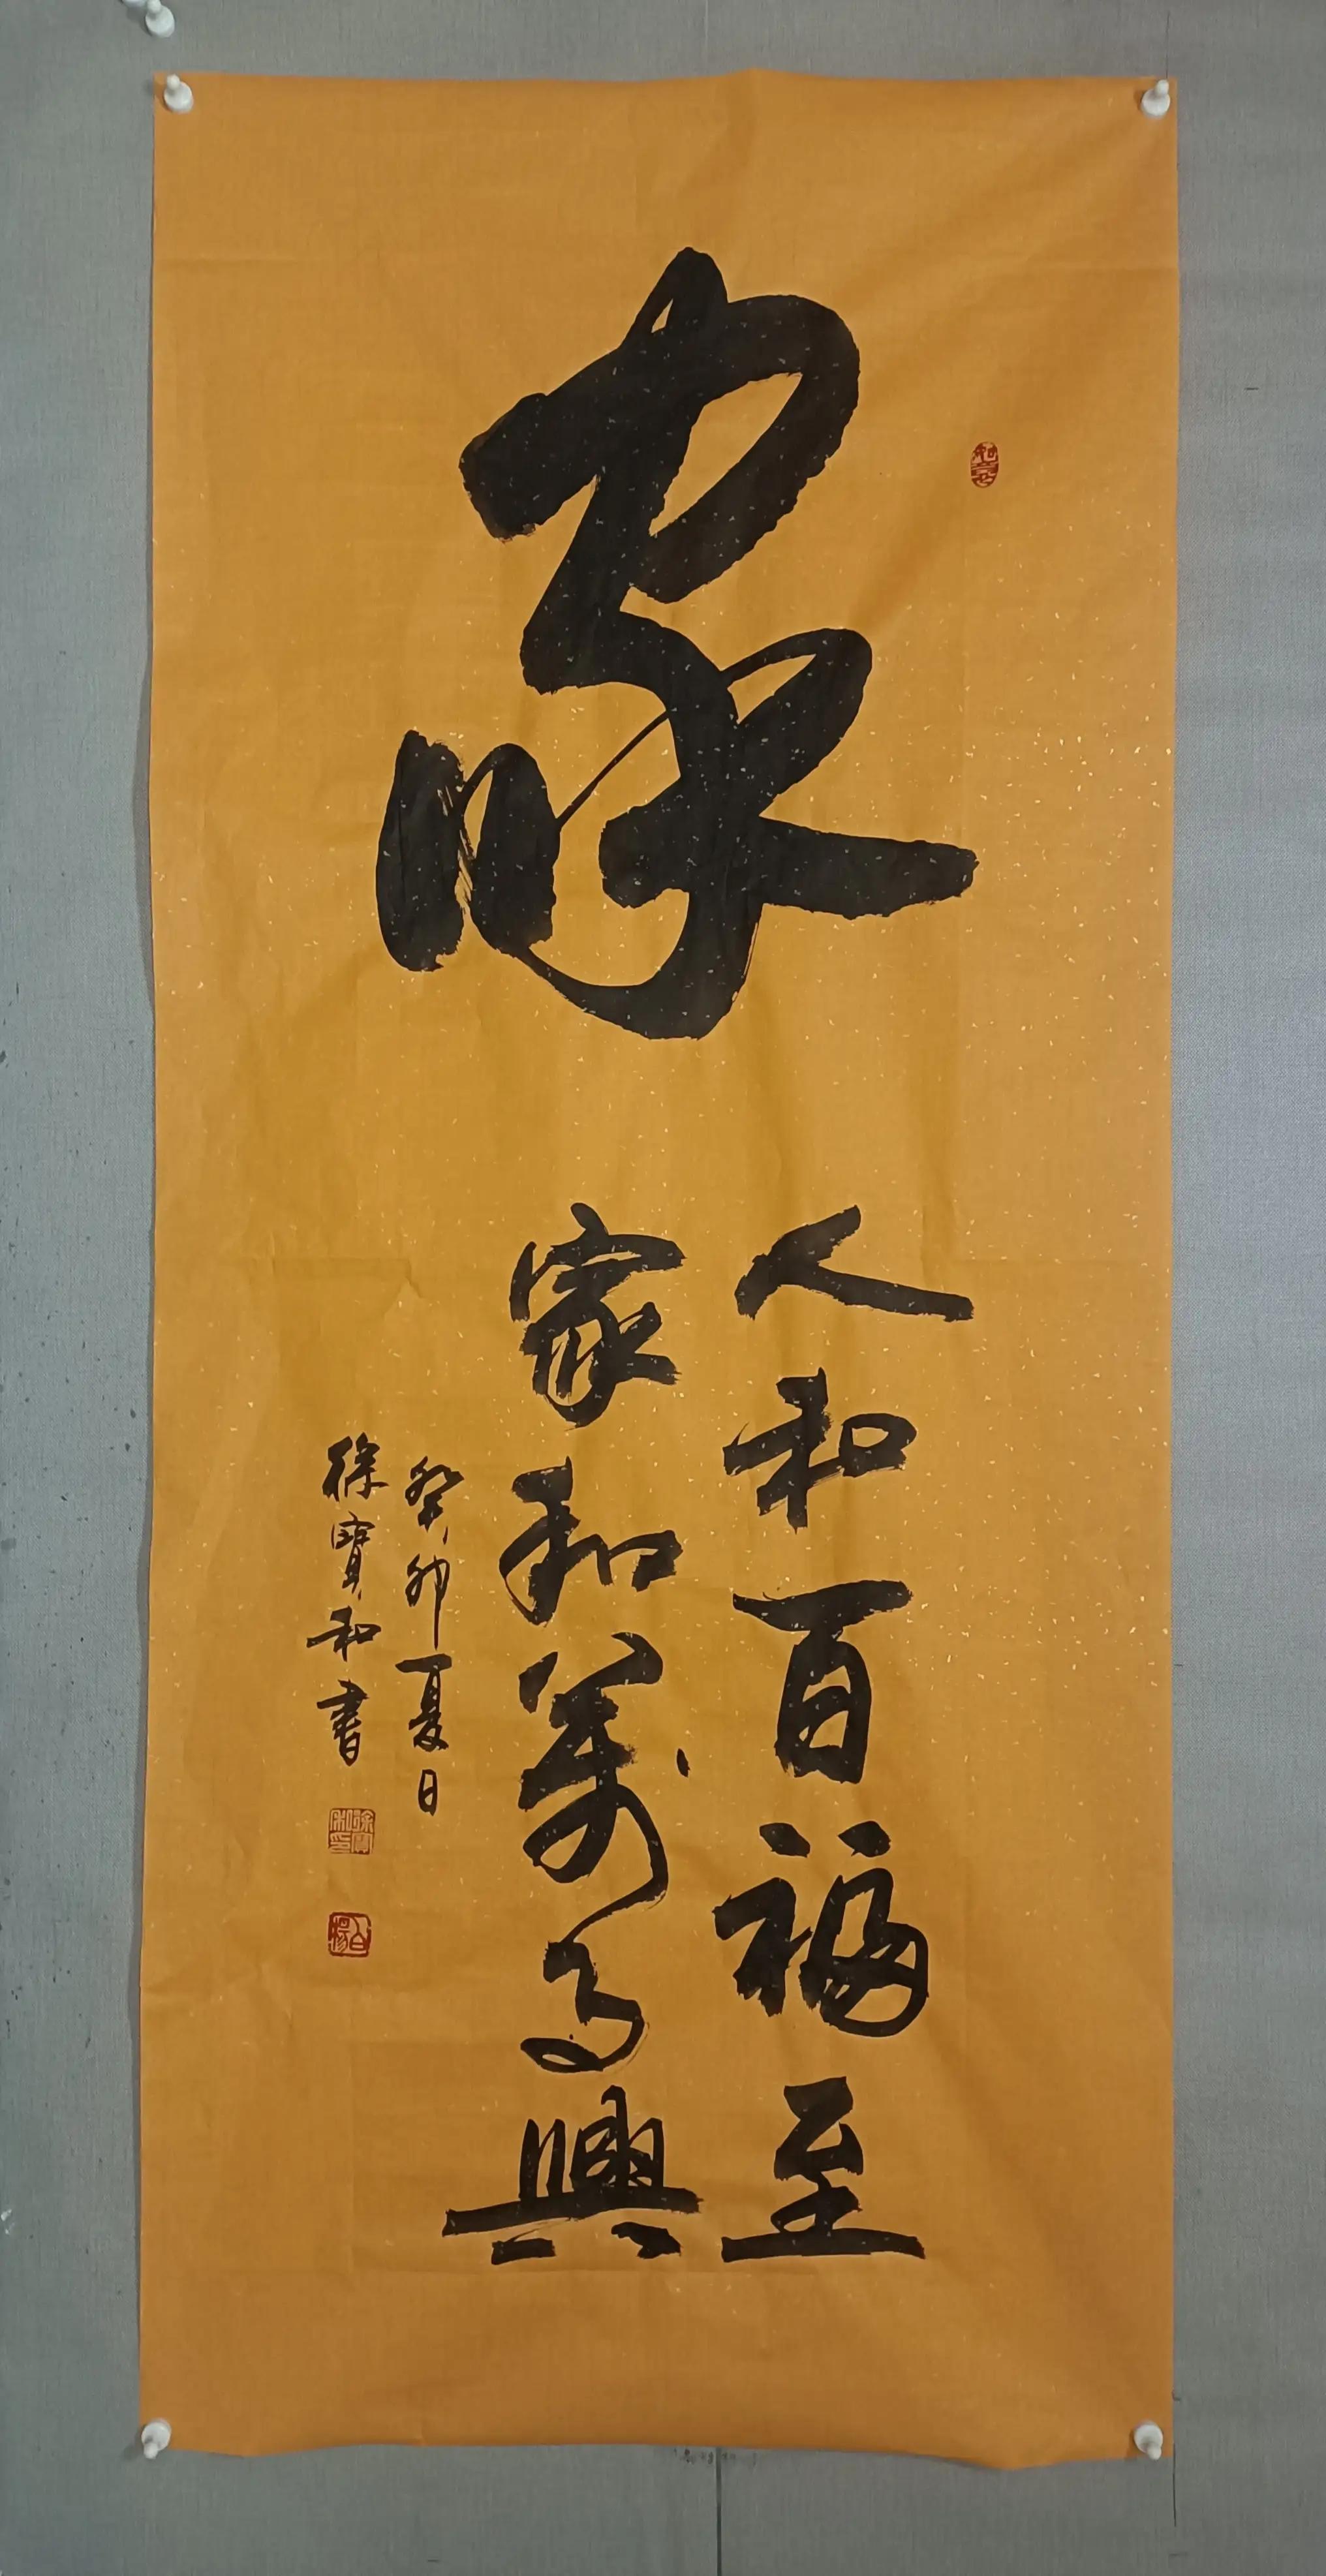 家
人和百福至
家和萬事興
癸卯夏日
徐寶和書